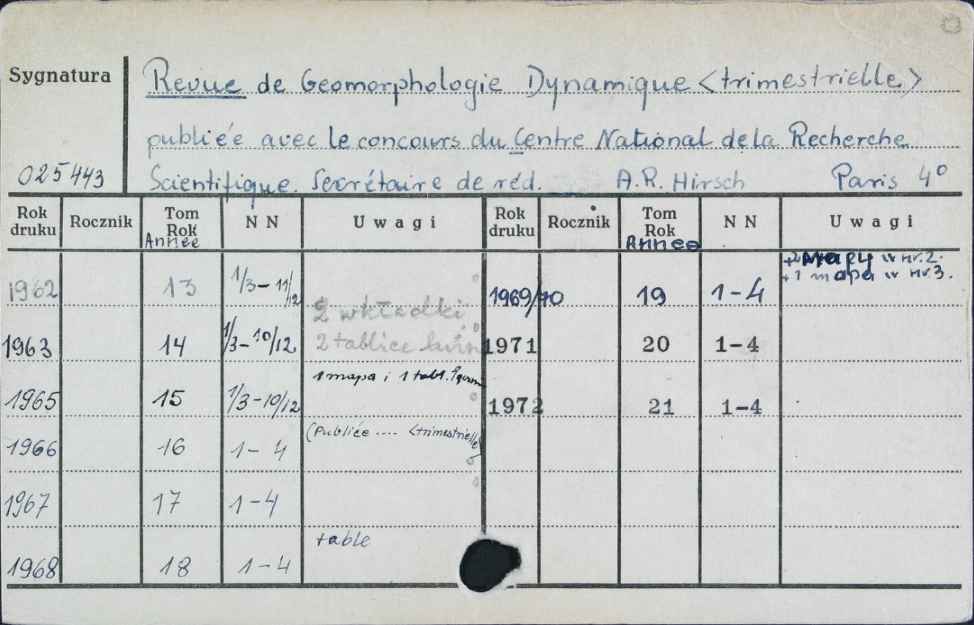 Sygnatura
Revue de Geomorphologie Dynamique <trimestrielle>
publiée avec le concours du Centre National de la Recherche
025443
Scientifique. Secrétaire de réd. A.R. Hirsch Paris 4°
Rok druku Rocznik Tom Rok Année NN Uwagi Rok druku Rocznik Tom Rok Année NN Uwagi
+2 mapy w nr.2.
+1 mapa w nr 3.
1962 13 1/3-11/12 1969/70 19 1-4
2 wkładki
1963 14 1/3-10/12 2 tablice 1971 20 1-4
1 mapa i 1 tabl.
1965 15 1/3-10/12 1972 21 1-4
(Publiée .... <trimestrielle>
1966 16 1-4
1967 17 1-4
table
1968 18 1-4